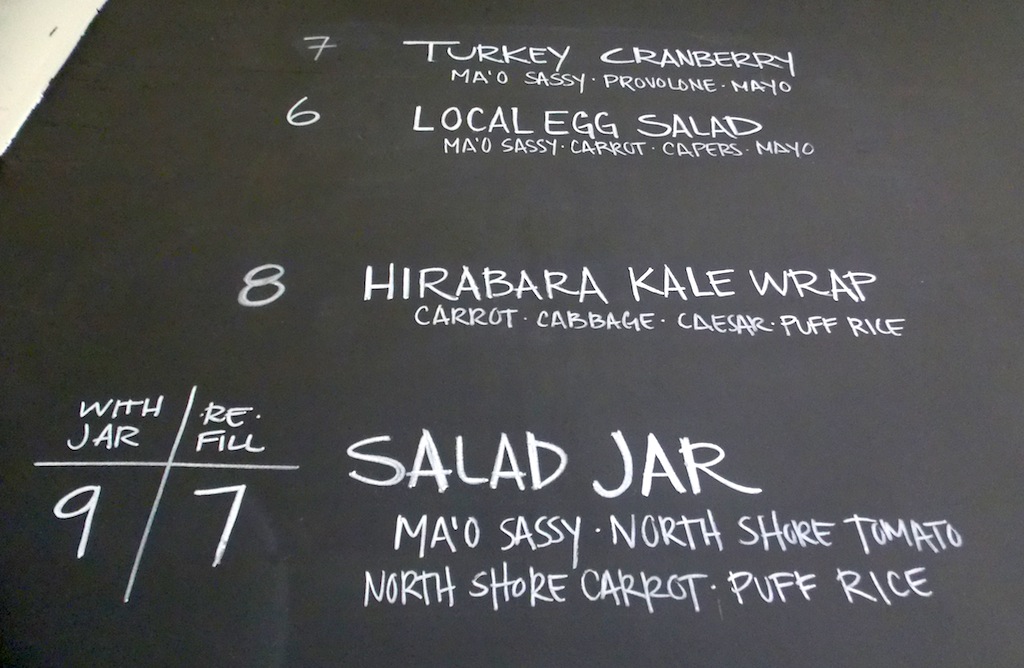 7 TURKEY CRANBERRY
MA'O SASSY · PROVOLONE · MAYO
6 LOCAL EGG SALAD
MA'O SASSY · CARROT · CAPERS · MAYO
8 HIRABARA KALE WRAP
CARROT · CABBAGE · CAESAR · PUFF RICE
WITH JAR
·RE· FILL
9 7
SALAD JAR
MA'O SASSY · NORTH SHORE TOMATO
NORTH SHORE CARROT · PUFF RICE